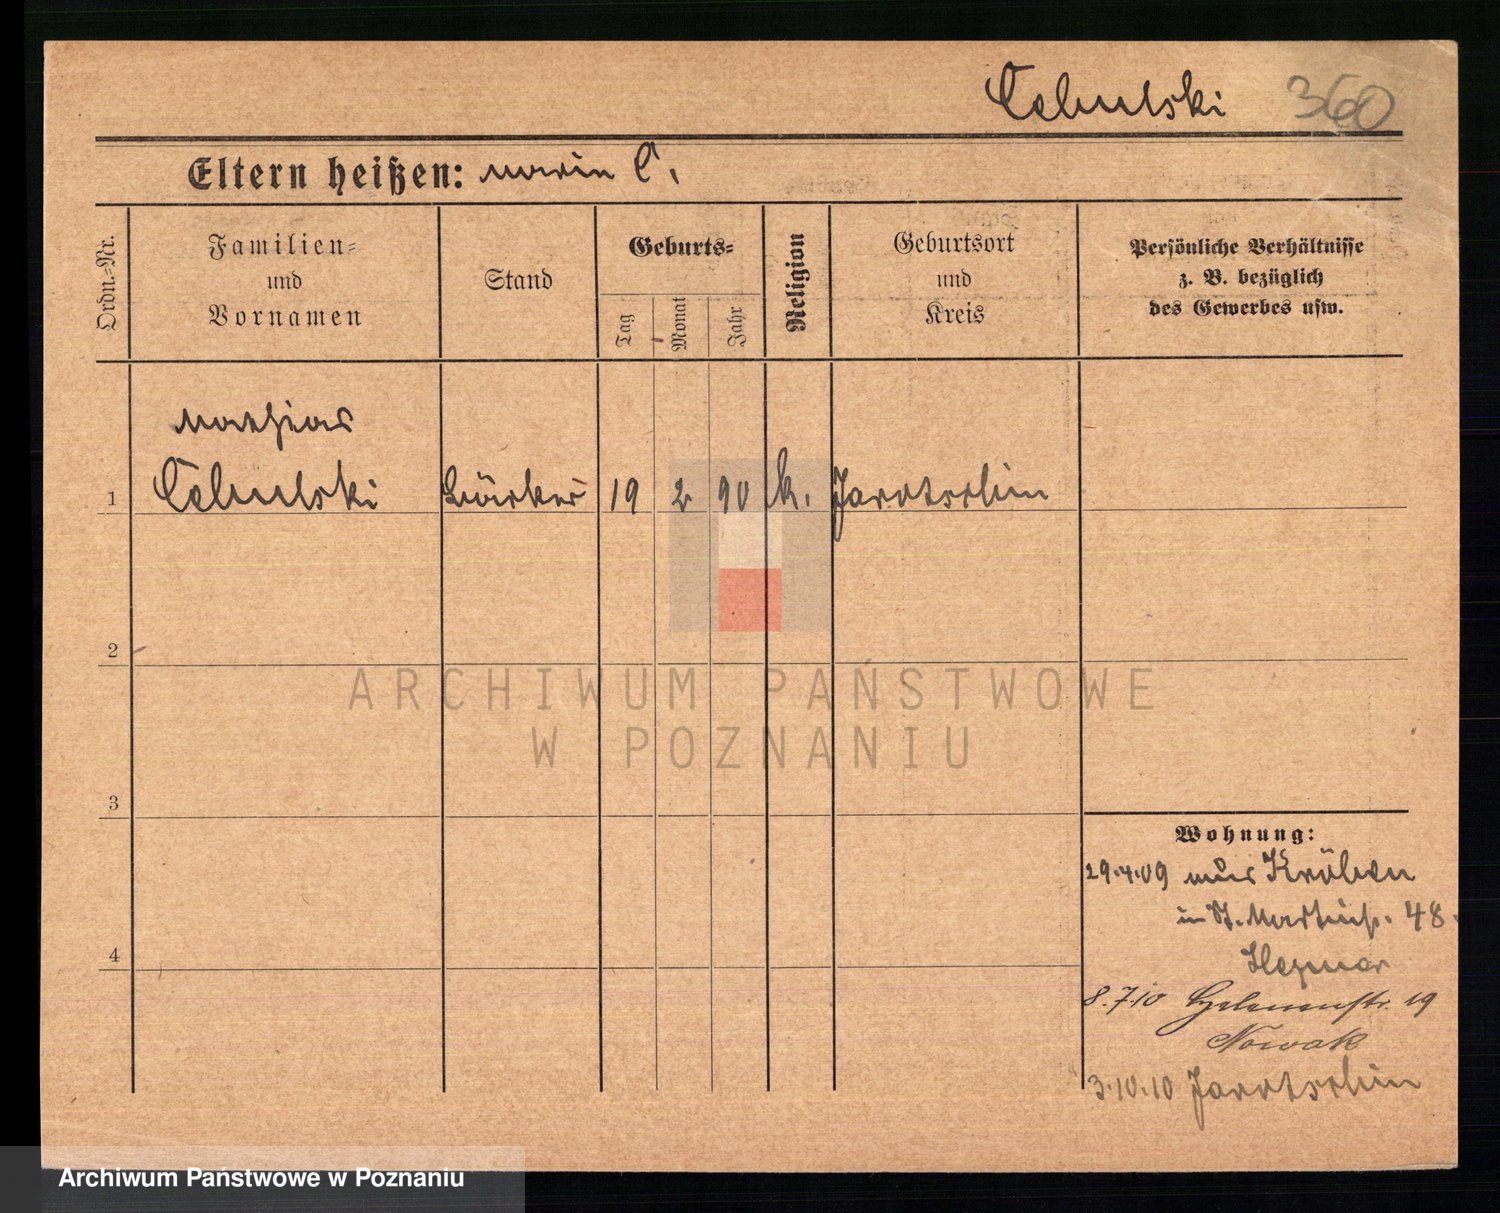 Cebulski 360
Eltern heißen: Maria C.
Ordn.-Nr.
Familien-
und
Vornamen
Stand
Geburts-
Tag
Monat
Jahr
Religion
Geburtsort
und
Kreis
Persönliche Verhältnisse
z. B. bezüglich
des Gewerbes usw.
Mathias
1 Cebulski Bäcker 19 2 90 k. Jarotschin
2
3
4
Wohnung:
29.4.09 aus Kröben
in St. Martinstr. 48.
8.7.10 19
Nowak
3.10.10 Jarotschin
ARCHIWUM PAŃSTWOWE
W POZNANIU
Archiwum Państwowe w Poznaniu